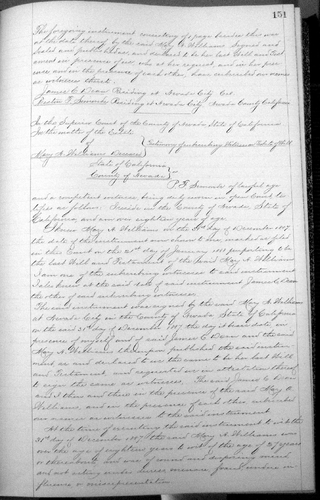 151
The foregoing instrument consisting of a page besides this was
at the date thereof by the said Mary A. Williams signed and
sealed and published as, and declared to be her last Will and Test
ament in presence of us, who at her request, and in her pres
ence and in the presence of each other, have subscribed our names
as witnesses thereto.
James C. Dean Residing at Nevada City Cal.
Residing at Nevada City, Nevada County California
In the Superior Court of the County of Nevada, State of California
In the matter of the Estate
of
Mary A. Williams Deceased
Testimony of subscribing Witness on Probate of Will
State of California,
County of Nevada
ss
of lawful age
and a competent witness, being duly sworn in open Court, tes
tifies as follows: I reside in the County of Nevada, State of
California, and am over eighteen years of age.
I knew Mary A. Williams on the 31st day of December 1897
the date of the instrument now shown to me, marked as filed
in this Court on the day of January purporting to be
the last Will and Testament of the said Mary A. Williams
I am one of the subscribing witnesses to said instrument
I also knew at the said date of said instrument James C. Dean
the other of said subscribing witnesses
The said instrument was signed by the said Mary A. Williams
at Nevada City in the County of Nevada State of California
on the said 31st day of December 1897 the day it bears date, in
presence of myself and of said James C. Dean and the said
Mary A. Williams thereupon published the said instru
ment as, and declared to us the same to be her last Will
and Testament and requested us in attestation thereof
to sign the same as witnesses. The said James C. Dean
and I then and there in the presence of the said Mary A.
Williams, and in the presence of each other subscribed
our names as witnesses to the said instrument
At the time of executing the said instrument to wit: the
31st day of December 1897 the said Mary A. Williams was
over the age of eighteen years to wit of the age of 57 years
or thereabouts, was of sound and disposing mind
and not acting under duress menace fraud undue in
fluence or misrepresentation.